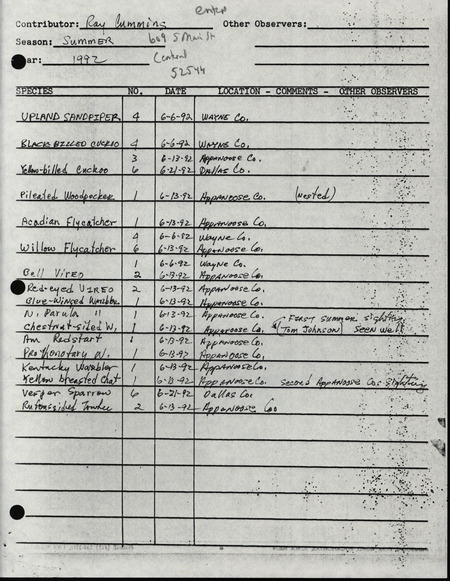 enter
Contributor: Ray Cummins Other Observers:
Season: Summer 609 S Main St
ar: 1992 Centerl
52544
SPECIES NO. DATE LOCATION - COMMENTS - OTHER OBSERVERS
UPLAND SANDPIPER 4 6-6-92 WAYNE Co.
BLACK BILLED CUCKOO 4 6-6-92 WAYNE Co.
3 6-13-92 Appanoose Co.
Yellow-billed Cuckoo 6 6-21-92 Dallas Co.
Pileated Woodpecker 1 6-13-92 Appanoose Co. (nested)
Acadian Flycatcher 1 6-13-92 Appanoose Co.
4 6-6-92 Wayne Co.
Willow Flycatcher 6 6-13-92 Appanoose Co.
1 6-6-92 Wayne Co.
Bell Vireo 2 6-13-92 Appanoose Co.
Red-eyed VIREO 2 6-13-92 Appanoose Co.
Blue-Winged Warbler 1 6-13-92 Appanoose Co.
N. Parula " 1 6-13-92 Appanoose Co. First summer sighting
Chestnut-sided W. 1 6-13-92 Appanoose Co. (Tom Johnson) seen well
Am Redstart 1 6-13-92 Appanoose Co.
Prothonotary W. 1 6-13-92 Appanoose Co.
Kentucky Warbler 1 6-13-92 Appanoose Co.
Yellow breasted Chat 1 6-13-92 Appanoose Co. second Appanoose Co. sighting
Vesper Sparrow 6 6-21-92 Dallas Co.
Rufoussided Towhee 2 6-13-92 Appanoose Co